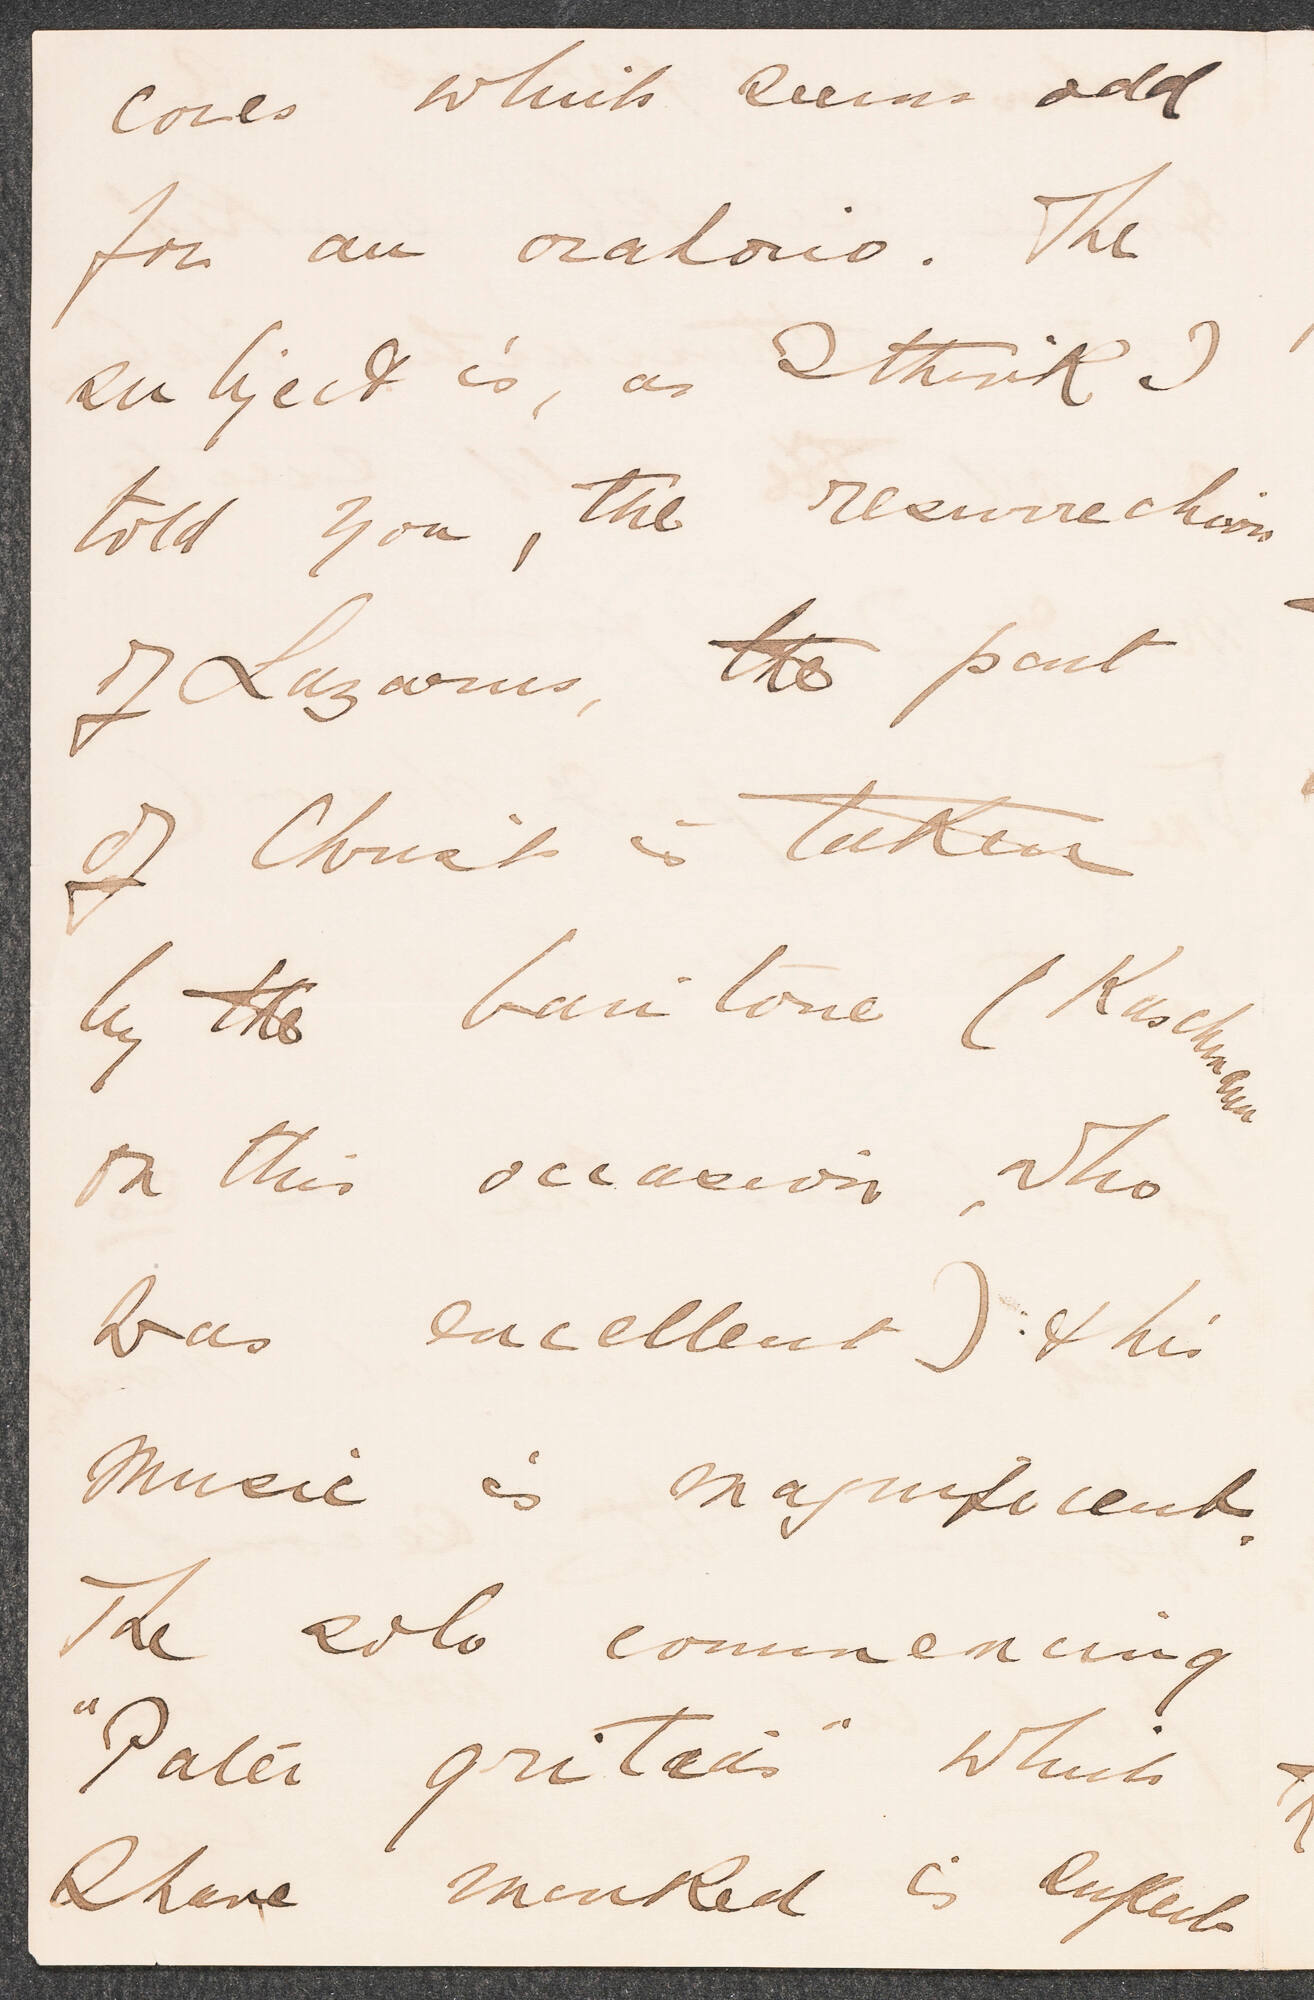 cores which seems odd
for an oratorio. The
subject is, as I think I
told you, the resurrection
of Lazarus, the part
of Christ is taken
by the baritone (Kaschmann
on this occasion, who
was excellent) & his
music is magnificent.
The solo commencing
"Pater gritais" which
I have marked is superb